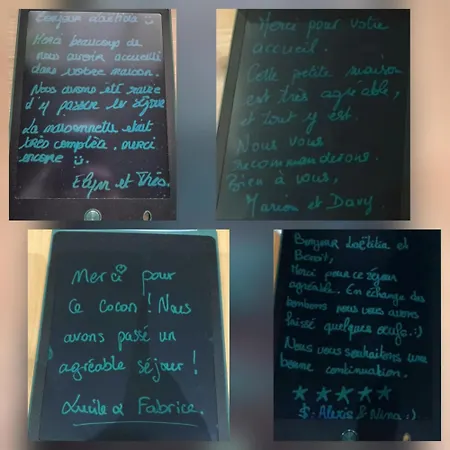 Bonjour Laëtitia :)
Merci beaucoup de
nous avoir accueilli
dans votre maison.
Nous avons été ravie
d'y passer le séjour
La maisonnette était
très complète, merci
encore :).
Elyn et Théo.
Merci pour votre
accueil.
Cette petite maison
est très agréable,
et tout y est.
Nous vous
recommanderons.
Bien à vous,
Marion et Davy.
Merci pour
ce cocon ! Nous
avons passé un
agréable séjour !
Lucile & Fabrice.
Bonjour Laëtitia et
Benoit,
Merci pour ce séjour
agréable. En échange des
bonbons nous vous avons
laissé quelques oeufs. :)
Nous vous souhaitons une
bonne continuation.
★ ★ ★ ★ ★
$: Alexis & Nina :)